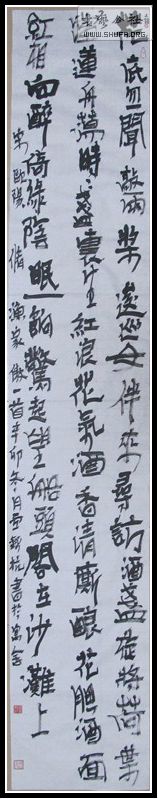 WWW.SHUFA.ORG
花底忽聞敲兩槳逡巡女伴來尋訪酒盞旋將荷葉
當蓮舟蕩時時盞裏生紅浪花氣酒香清廝釀花腮酒面
紅相向醉倚綠陰眠一餉驚起望船頭閣在沙灘上
宋歐陽脩漁家傲一首辛卯冬月書於